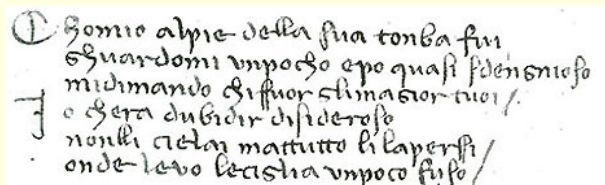 C homio alpie della sua tonba fui
ghuardomi vnpocho epo quasi sdengnioso
midimando chiffuor glimagior tuoi /.
I o chera dubidir disideroso
nonlli cielai mattutto lilapersi /
onde levo leciglia vnpoco suso /